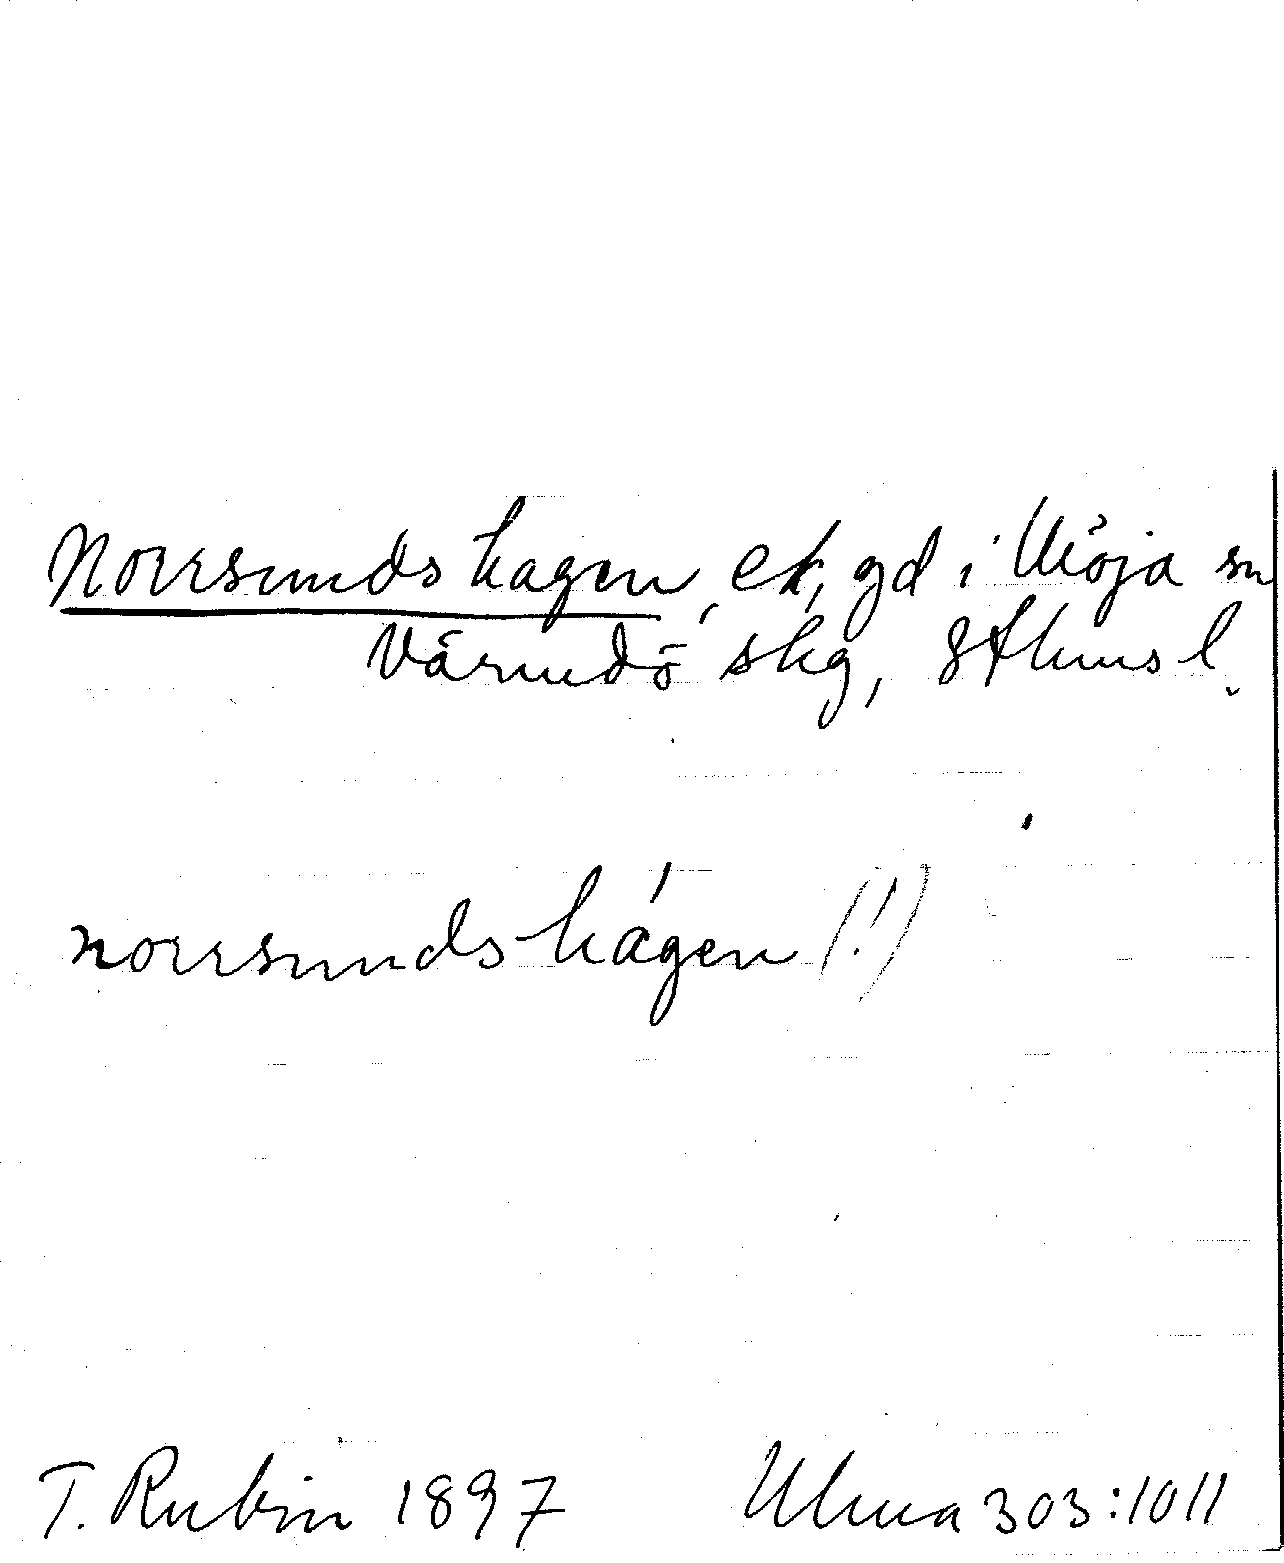 Norrsundshagen, ek, gd i Möja sn
Värmdö skg, Sthms l.
norrsunds-hágen (!)
T. Rubin 1897 Ulma 303:1011